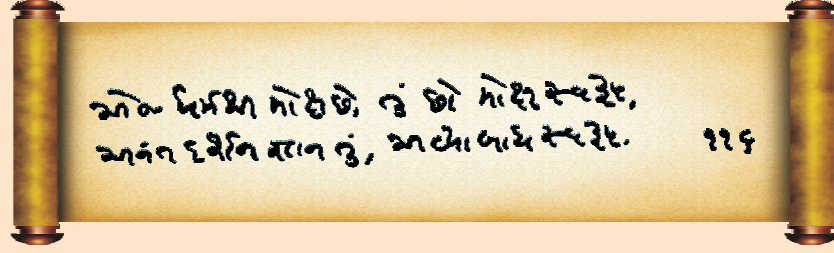 એજ ધર્મથી મોક્ષ છે, તું છો મોક્ષ સ્વરૂપ,
અનંત દર્શન જ્ઞાન તું, અવ્યાબાધ સ્વરૂપ. ૧૧૬